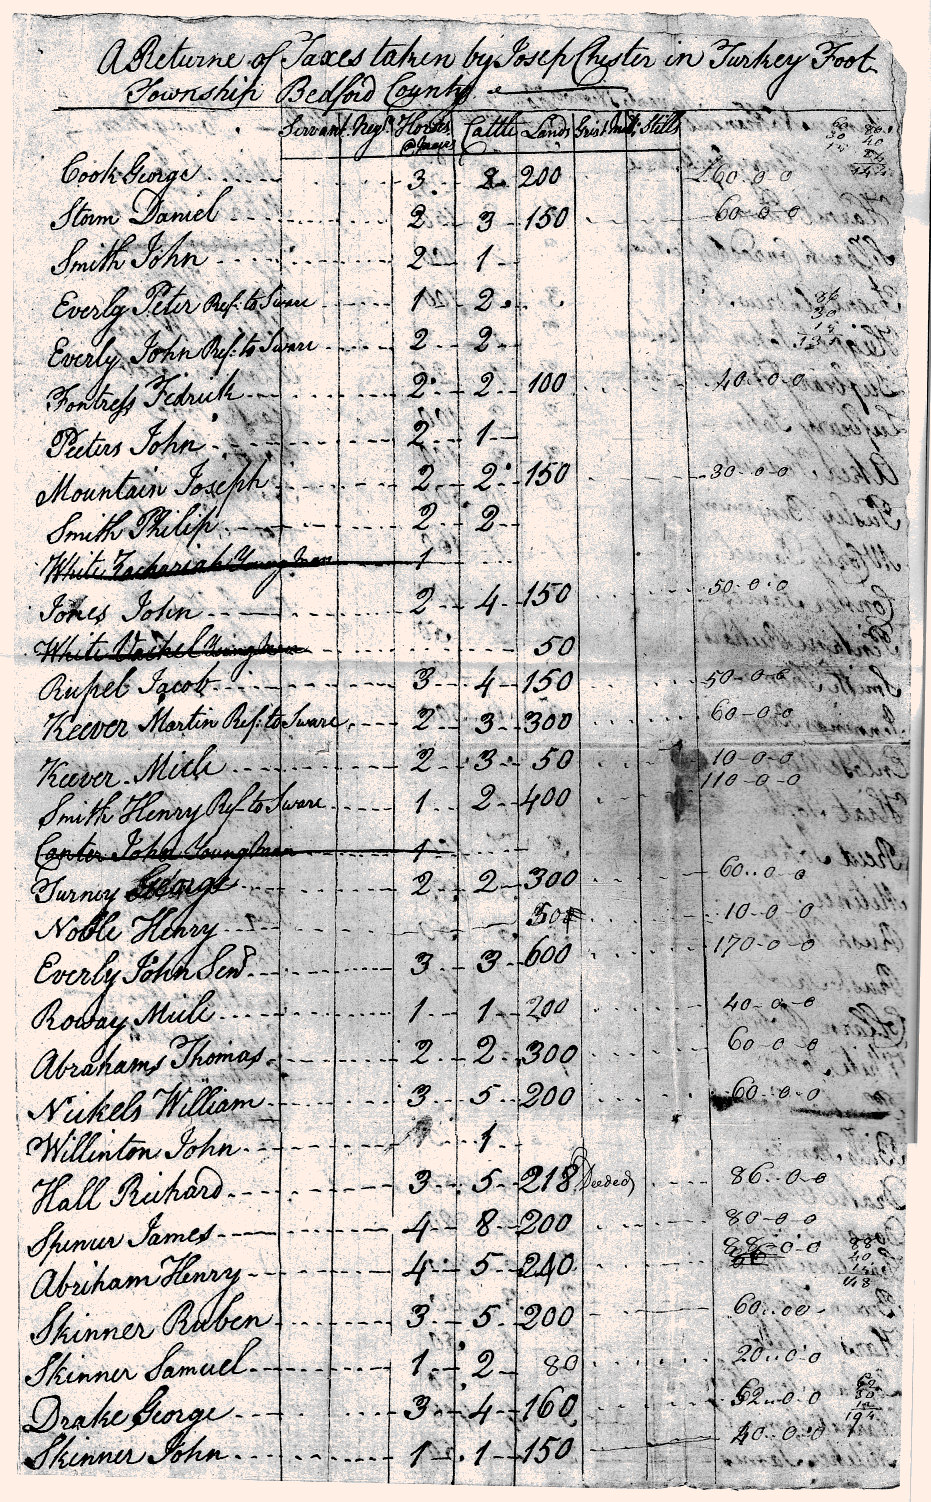 A Returne of Taxes taken by Josep Chester in Turkey Foot
Township Bedford County
Servant. Neg.s Horses & mares Cattle Lands Grist Mill: Stills
Cook George 3 2 200 60-0-0
Storm Daniel 2 3 150 60-0-0
Smith John 2 1
Everly Peter Ref: to Sware 1 2
Everly John Ref: to Sware 2 2
Fontress Fedrick 2 2 100 40-0-0
Peeters John 2 1
Mountain Joseph 2 2 150 30-0-0
Smith Philip 2 2
White Zachariah Young man 1
Jones John 2 4 150 50-0-0
White Young man 50
Rupel Jacob 3 4 150 50-0-0
Keever Martin Ref: to Sware 2 3 300 60-0-0
Keever Mich 2 3 50 10-0-0
Smith Henry Ref to Sware 1 2 400 110-0-0
Canter John Young man 1
Turney George 2 2 300 60-0-0
Noble Henry 50 10-0-0
Everly John Senr 3 3 600 170-0-0
Roway Mule 1 1 200 40-0-0
Abrahams Thomas 2 2 300 60-0-0
Nickels William 3 5 200 60-0-0
Willinton John 1
Hall Richard 3 5 218 Deeded 86-0-0
Spencer James 4 8 200 80-0-0
Abriham Henry 4 5 240 88-0-0
Skinner Ruben 3 5 200 60-00
Skinner Samuel 1 2 80 20-0-0
Drake George 3 4 160 52-0-0
Skinner John 1 1 150 40-0-0